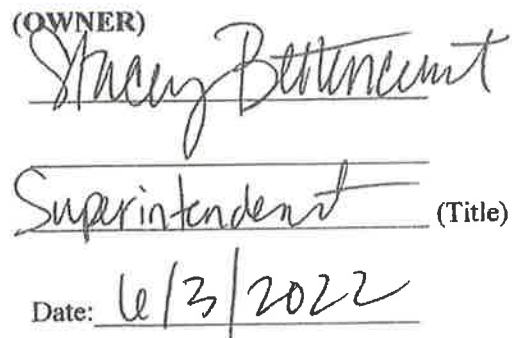 (OWNER)
Stacey Bettencourt
Superintendent (Title)
Date: 6/3/2022